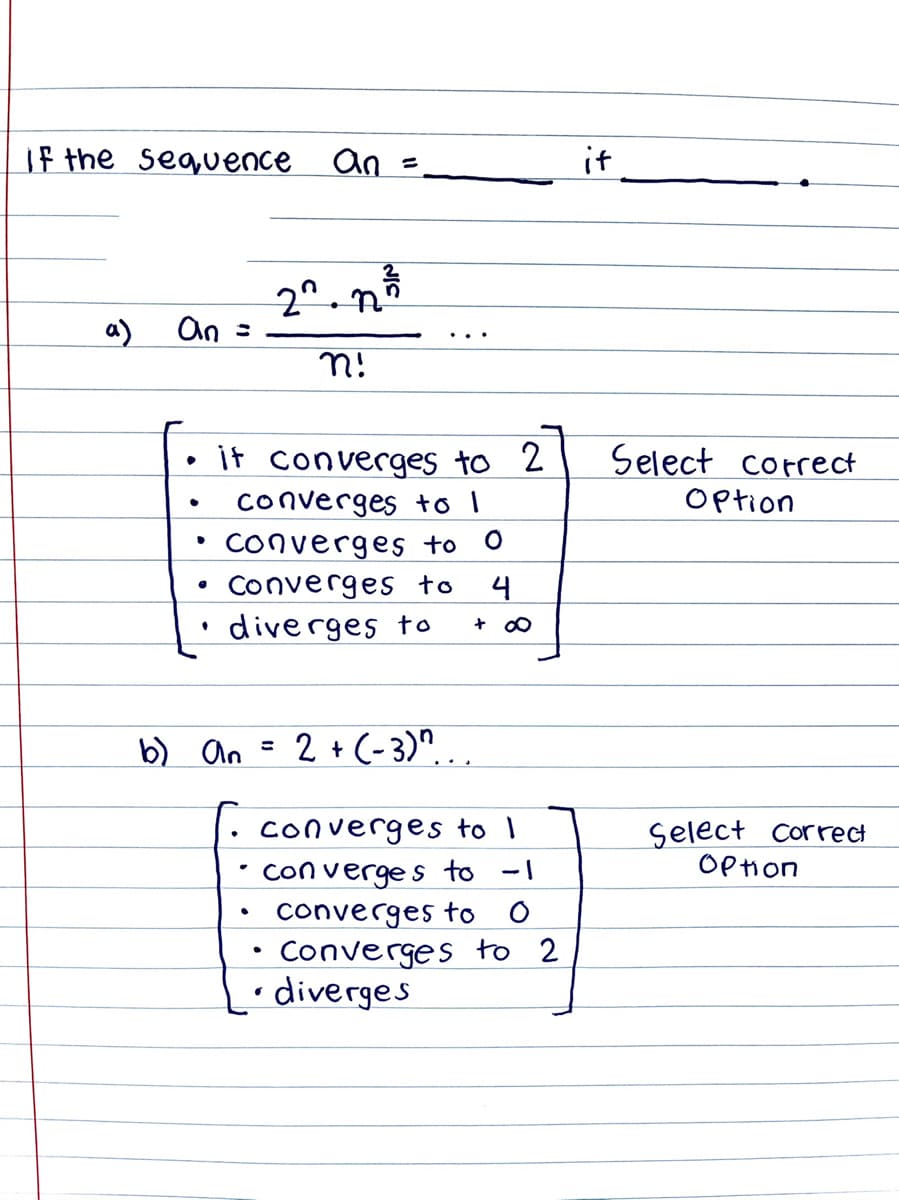 If the sequence an = ______ it ______.
a) an = 2ⁿ · n^(2/n) / n! ...
• it converges to 2 Select correct
• converges to 1 Option
• converges to 0
• converges to 4
• diverges to + ∞
b) an = 2 + (-3)ⁿ...
• converges to 1 Select correct
• converges to -1 Option
• converges to 0
• converges to 2
• diverges